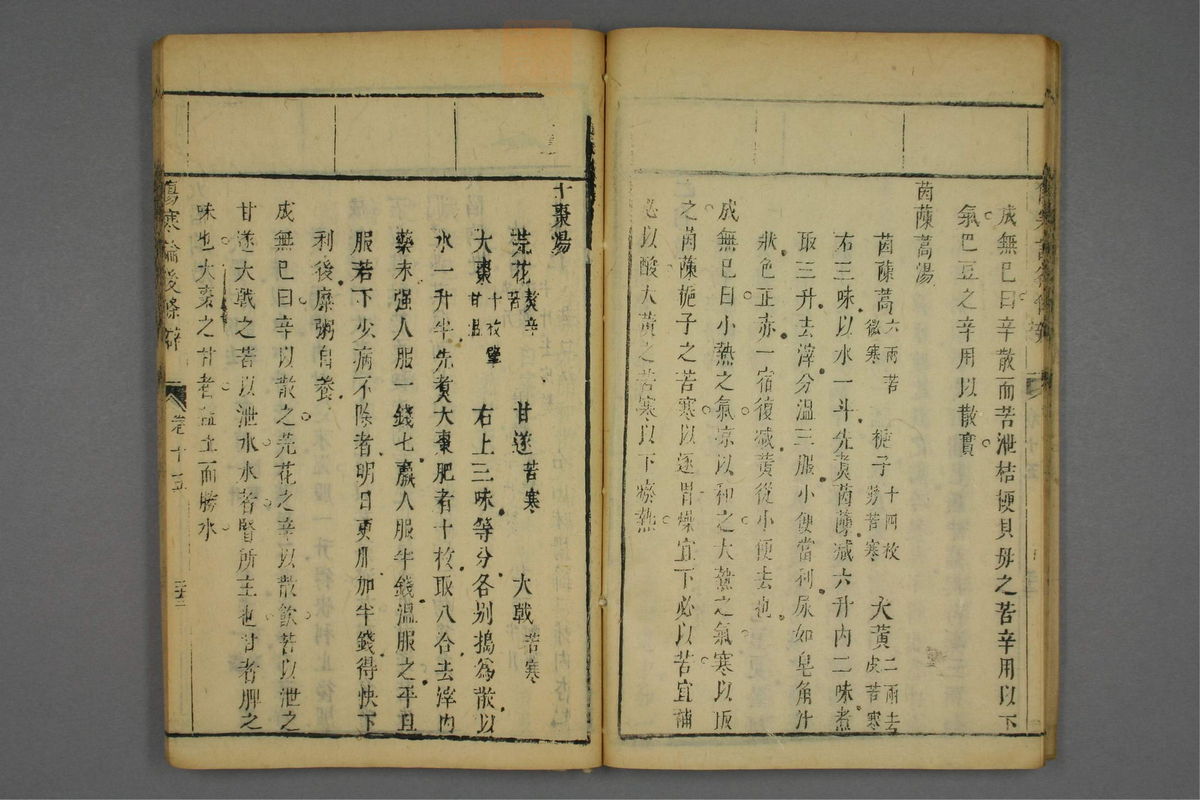 成無巳曰辛散而苦泄桔梗貝母之苦辛用以下
氣巴豆之辛用以散實
茵蔯蒿湯
茵蔯蒿六兩苦微寒 梔子十四枚劈苦寒 大黃二兩去皮苦寒
右三味以水一斗先煑茵蔯減六升內二味煮
取三升去滓分溫三服小便當利尿如皂角汁
狀色正赤一宿復減黃從小便去也
成無巳曰小熱之氣凉以和之大熱之氣寒以取
之茵蔯梔子之苦寒以逐胃燥宜下必以苦宜補
必以酸大黃之苦寒以下瘀熱
十棗湯
芫花熬辛苦 甘遂苦寒 大戟苦寒
大棗十枚擘甘溫 右上三味等分各别搗為散以
水一升半先煑大棗肥者十枚取八合去滓內
藥末强人服一錢七羸人服半錢溫服之平旦
服若下少病不除者明日更服加半錢得快下
利後糜粥自養
成無巳曰辛以散之芫花之辛以散飲苦以泄之
甘遂大戟之苦以泄水水者腎所主也甘者脾之
味也大棗之甘者益土而勝水
傷寒論後條辯
卷十五